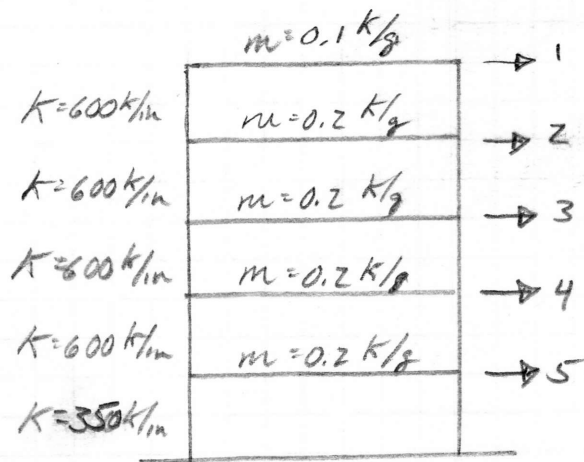 m=0.1 k/g
1
K=600k/in
m=0.2 k/g
2
K=600k/in
m=0.2 k/g
3
K=600k/in
m=0.2 k/g
4
K=600k/in
m=0.2 k/g
5
K=350k/in